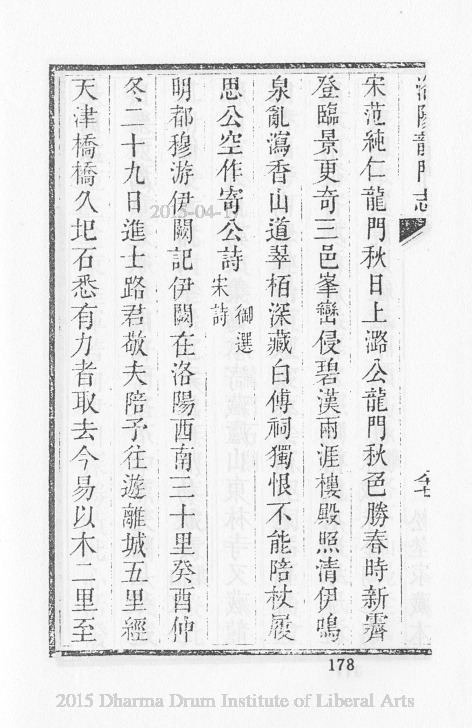 洛陽龍門志
宋范純仁龍門秋日上潞公龍門秋色勝春時新霽
登臨景更奇三邑峯巒侵碧漢兩涯樓殿照清伊鳴
泉亂瀉香山道翠栢深藏白傅祠獨恨不能陪杖屨
思公空作寄公詩
御選
宋詩
明都穆游伊闕記伊闕在洛陽西南三十里癸酉仲
冬二十九日進士路君敬夫陪予往遊離城五里經
天津橋橋久圯石悉有力者取去今易以木二里至
178
2015 Dharma Drum Institute of Liberal Arts